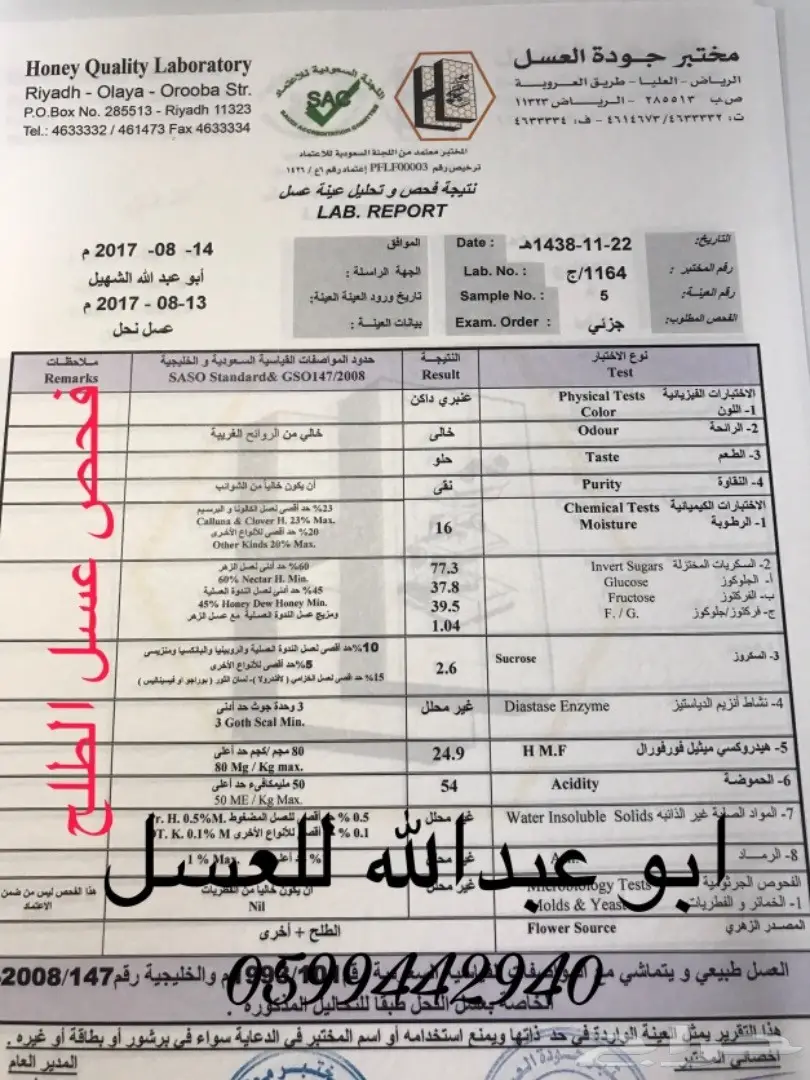 Honey Quality Laboratory
Riyadh - Olaya - Orooba Str.
P.O.Box No. 285513 - Riyadh 11323
Tel.: 4633332 / 461473 Fax 4633334
اللجنة السعودية للاعتماد
SAC
SAUDI ACCREDITATION COMMITTEE
مختبر جودة العسل
الرياض - العليا - طريق العروبة
ص.ب ٢٨٥٥١٣ - الرياض ١١٣٢٣
ت: ٤٦٣٣٣٣٢/٤٦١٤٦٧٣ - ف: ٤٦٣٣٣٣٤
المختبر معتمد من اللجنة السعودية للاعتماد
ترخيص رقم PFLF00003 إعتماد رقم ٦ع / ١٤٢٦
نتيجة فحص و تحليل عينة عسل
LAB. REPORT
التاريخ: 1438-11-22هـ Date : الموافق 14- 08- 2017 م
رقم المختبر : 1164/ج Lab. No. : الجهة الراسلة : أبو عبد الله الشهيل
رقم العينة: 5 Sample No. : تاريخ ورود العينة العينة: 13-08 - 2017 م
الفحص المطلوب: جزئي Exam. Order : بيانات العينة : عسل نحل
نوع الاختبار النتيجة حدود المواصفات القياسية السعودية و الخليجية ملاحظات
Test Result SASO Standard& GSO147/2008 Remarks
الاختبارات الفيزيائية Physical Tests
1- اللون Color عنبري داكن
2- الرائحة Odour خالى خالي من الروائح الغريبة
3- الطعم Taste حلو
4- النقاوة Purity نقى أن يكون خالياً من الشوائب
الاختبارات الكيميائية Chemical Tests
1- الرطوبة Moisture 16
23% حد أقصى لعسل الكالونا و البرسيم
Calluna & Clover H. 23% Max.
20% حد أقصى للأنواع الأخرى
Other Kinds 20% Max.
2- السكريات المختزلة Invert Sugars 77.3
أ- الجلوكوز Glucose 37.8
ب- الفركتوز Fructose 39.5
ج- فركتوز/جلوكوز F. / G. 1.04
60% حد أدنى لعسل الزهر
60% Nectar H. Min.
45% حد أدنى لعسل الندوة العسلية
45% Honey Dew Honey Min.
ومزيج عسل الندوة العسلية مع عسل الزهر
3- السكروز Sucrose 2.6
10%حد أقصى لعسل الندوة العسلية والروبينيا والبانكسيا ومنزيسى
5%حد أقصى للأنواع الأخرى
15% حد أقصى لعسل الخزامي (لافندولا)- لسان الثور ( بوراجو
4- نشاط أنزيم الدياستيز Diastase Enzyme غير محلل 3 وحدة جوث حد أدنى
3 Goth Scal Min.
5- هيدروكسي ميثيل فورفورال H M.F 24.9 80 مجم /كجم حد أعلى
80 Mg / Kg max.
6- الحموضة Acidity 54 50 مليمكافىء حد أعلى
50 ME / Kg Max.
7- المواد الصلبة غير الذائبه Water Insoluble Solids غير محلل
0.5 % حد أقصى للعسل المضغوط Pr. H. 0.5%M.
0.1 % حد أقصى للأنواع الأخرى OT. K. 0.1% M
8- الرماد غير محلل
1 % Max.
الفحوص الجرثومية Microbiology Tests غير محلل أن يكون خالياً من الفطريات هذا الفحص ليس من ضمن الاعتماد
1- الخمائر و الفطريات Molds & Yeast Nil
المصدر الزهري Flower Source الطلح + أخرى
فحص عسل الطلح
ابو عبدالله للعسل
0599442940
العسل طبيعي و يتماشي مع المواصفات القياسية السعودية رقم والخليجية رقم2008/147
الخاصة بعسل النحل طبقا للتحاليل المذكورة .
هذا التقرير يمثل العينة الواردة في حد ذاتها ويمنع استخدامه أو اسم المختبر في الدعاية سواء في برشور أو بطاقة أو غيره .
أخصائي المختبر المدير العام